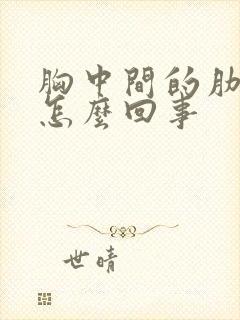 胸中間的肋
怎麼回事
世晴